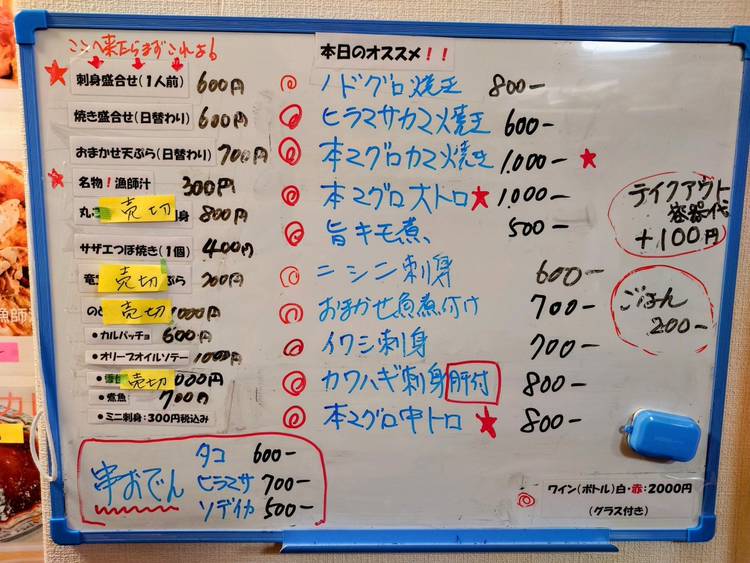 ここへ来たらまずこれよ!
刺身盛合せ(1人前) 600円
焼き盛合せ(日替わり) 600円
おまかせ天ぷら(日替わり) 700円
名物!漁師汁 300円
丸 売切 身 800円
サザエつぼ焼き(1個) 400円
竜 売切 ぷら 200円
のど 売切 000円
●カルパッチョ 600円
●オリーブオイルソテー 1000円
● 売切 000円
●煮魚 700円
●ミニ刺身:300円税込み
串おでん
タコ 600-
ヒラマサ 700-
ソデイカ 500-
本日のオススメ!!
ノドグロ焼王 800-
ヒラマサカマ焼王 600-
本マグロカマ焼王 1,000-
本マグロ大トロ 1,000-
旨キモ煮 500-
ニシン刺身 600-
おまかせ魚煮付け 700-
イワシ刺身 700-
カワハギ刺身肝付 800-
本マグロ中トロ 800-
テイクアウト
容器代
+100円
ごはん
200-
ワイン(ボトル)白・赤:2000円
(グラス付き)